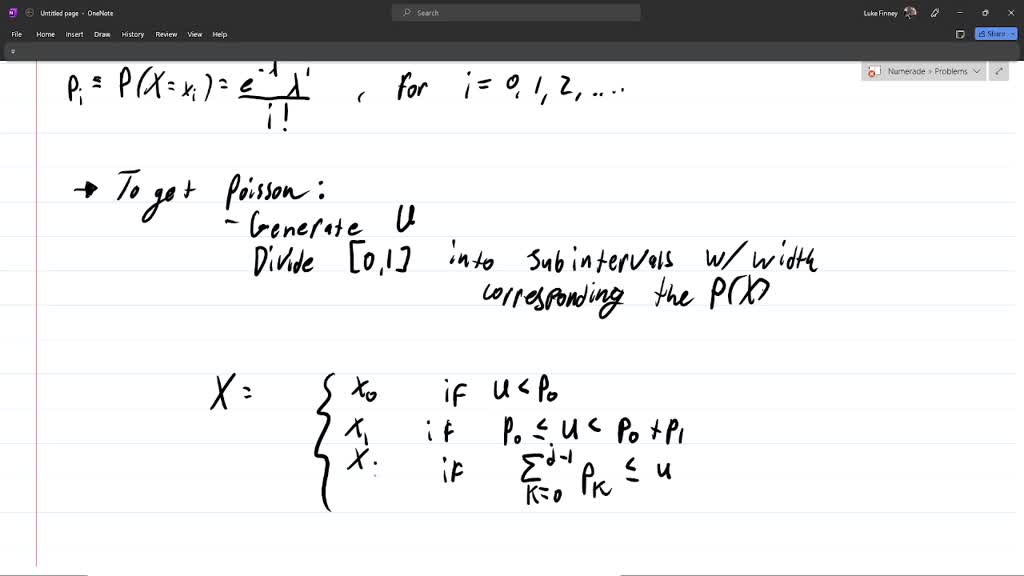 Untitled page - OneNote
Search
Luke Finney
File Home Insert Draw History Review View Help
Share
Numerade » Problems
Pᵢ ≡ P(X = xᵢ) = e^-λ λ^i / i! , for i = 0, 1, 2, ....
→ To get Poisson:
- Generate U
Divide [0,1] into subintervals w/ width
corresponding the P(X)
X = { x₀ if u < P₀
x₁ if P₀ ≤ u < P₀ + P₁
x. if Σ_{K=0}^{j-1} P_K ≤ u